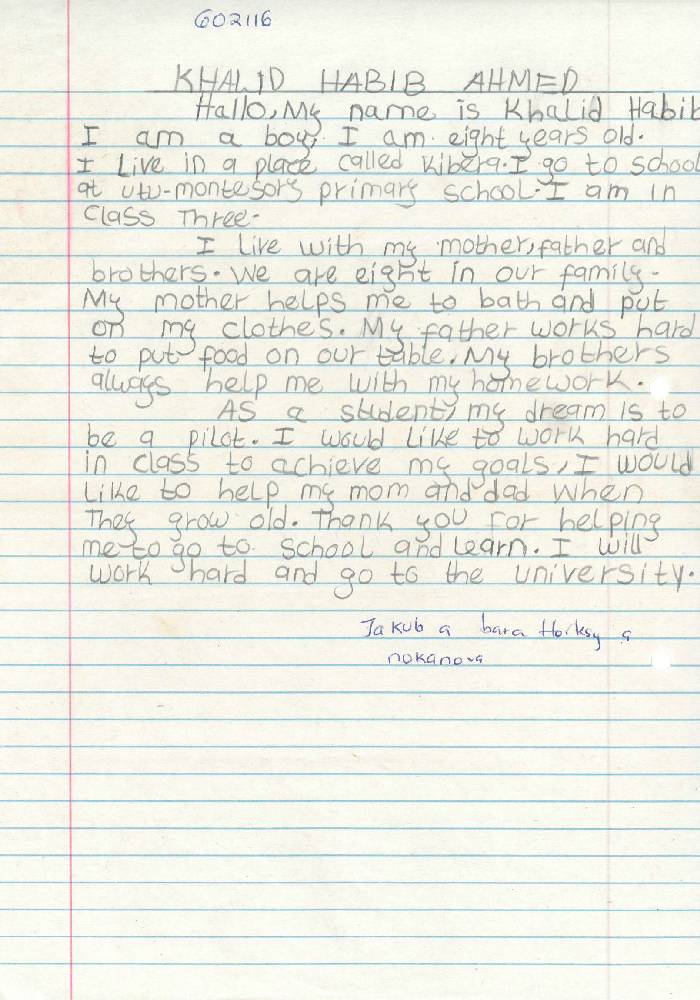 602116
KHALID HABIB AHMED
Hallo, My name is Khalid Habib
I am a boy, I am eight years old.
I Live in a place called Kibera. I go to school
at utu-montesory primary school. I am in
Class Three.
I Live with my mother, father and
brothers. We are eight in our family.
My mother helps me to bath and put
on my clothes. My father works hard
to put food on our table. My brothers
always help me with my homework.
As a student, my dream is to
be a pilot. I would Like to work hard
in class to achieve my goals, I would
Like to help my mom and dad when
They grow old. Thank you for helping
me to go to school and Learn. I will
work hard and go to the university.
Jakub a bara Horksy a
nokanova